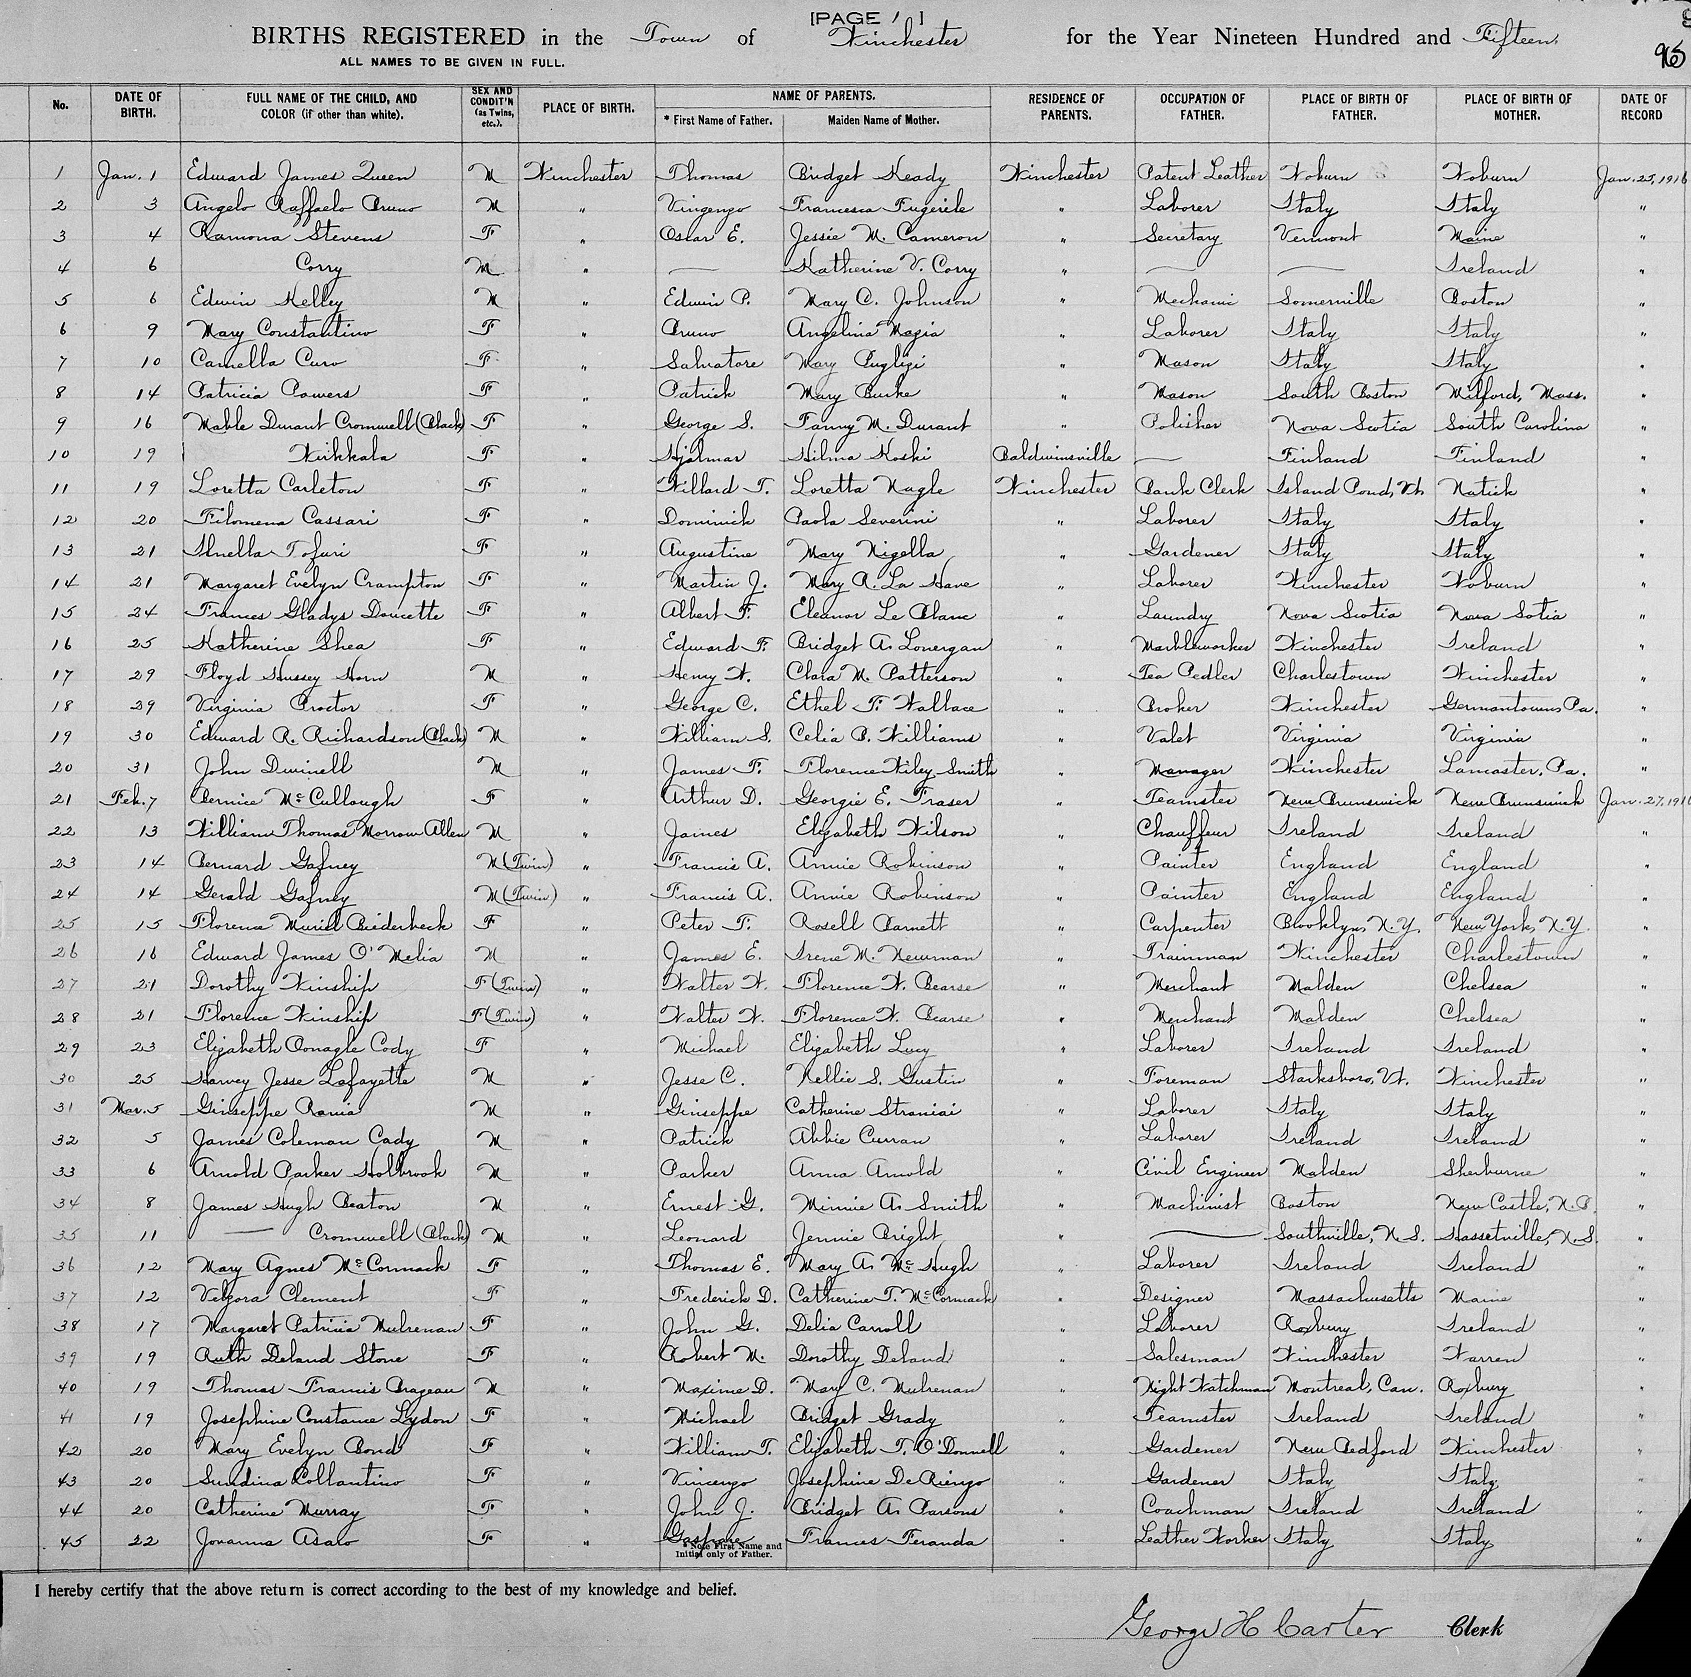 [PAGE 1]
BIRTHS REGISTERED in the Town of Winchester for the Year Nineteen Hundred and Fifteen.
ALL NAMES TO BE GIVEN IN FULL.
95
No. DATE OF BIRTH. FULL NAME OF THE CHILD, AND COLOR (if other than white). SEX AND CONDIT'N (as Twins, etc.). PLACE OF BIRTH. NAME OF PARENTS. * First Name of Father. Maiden Name of Mother. RESIDENCE OF PARENTS. OCCUPATION OF FATHER. PLACE OF BIRTH OF FATHER. PLACE OF BIRTH OF MOTHER. DATE OF RECORD
1 Jan. 1 Edward James Queen M Winchester Thomas Bridget Keady Winchester Patent Leather Woburn Woburn Jan. 25, 1916
2 3 Angelo Raffaelo Bruno M " Vingengo Francesca Fugerile " Laborer Italy Italy "
3 4 Ramona Stevens F " Oscar E. Jessie M. Cameron " Secretary Vermont Maine "
4 6 Corry M " — Katherine V. Corry " — — Ireland "
5 6 Edwin Kelley M " Edwin P. Mary C. Johnson " Mechanic Somerville Boston "
6 9 Mary Constantino F " Bruno Angelina Magia " Laborer Italy Italy "
7 10 Camella Curo F " Salvatore Mary Puglizi " Mason Italy Italy "
8 14 Patricia Powers F " Patrick Mary Burke " Mason South Boston Milford, Mass. "
9 16 Mable Durant Cromwell (Black) F " George S. Fanny M. Durant " Polisher Nova Scotia South Carolina "
10 19 Wirkkala F " Hjalmar Hilma Koski Baldwinsville — Finland Finland "
11 19 Loretta Carleton F " Willard T. Loretta Nagle Winchester Bank Clerk Island Pond, Vt. Natick "
12 20 Filomena Cassari F " Dominick Paola Severini " Laborer Italy Italy "
13 21 Ilnella Tofuri F " Augustine Mary Nigella " Gardener Italy Italy "
14 21 Margaret Evelyn Crampton F " Martin J. Mary A. La Have " Laborer Winchester Woburn "
15 24 Frances Gladys Doucette F " Albert F. Eleanor Le Blanc " Laundry Nova Scotia Nova Sotia "
16 25 Katherine Shea F " Edward F. Bridget A. Lonergan " Marbleworker Winchester Ireland "
17 29 Floyd Hussey Horn M " Henry W. Clara M. Patterson " Tea Pedler Charlestown Winchester "
18 29 Virginia Proctor F " George C. Ethel F. Wallace " Broker Winchester Germantown, Pa. "
19 30 Edward R. Richardson (Black) M " William S. Celia B. Williams " Valet Virginia Virginia "
20 31 John Dwinell M " James F. Florence Wiley Smith " Manager Winchester Lancaster, Pa. "
21 Feb. 7 Bernice McCullough F " Arthur D. Georgie E. Fraser " Teamster New Brunswick New Brunswick Jan. 27, 191
22 13 William Thomas Morrow Allen M " James Elizabeth Wilson " Chauffeur Ireland Ireland "
23 14 Bernard Gafney M (Twin) " Francis A. Annie Robinson " Painter England England "
24 14 Gerald Gafney M (Twin) " Francis A. Annie Robinson " Painter England England "
25 15 Florence Muriel Biederbeck F " Peter T. Rosell Barnett " Carpenter Brooklyn, N.Y. New York, N.Y. "
26 16 Edward James O'Melia M " James E. Irene M. Newman " Trainman Winchester Charlestown "
27 21 Dorothy Winship F (Twin) " Walter W. Florence W. Bearse " Merchant Malden Chelsea "
28 21 Florence Winship F (Twin) " Walter W. Florence W. Bearse " Merchant Malden Chelsea "
29 23 Elizabeth Oonagle Cody F " Michael Elizabeth Lucy " Laborer Ireland Ireland "
30 25 Harvey Jesse Lafayette M " Jesse C. Nellie S. Gustin " Foreman Starksboro, Vt. Winchester "
31 Mar. 5 Giuseppe Rania M " Giuseppe Catherine Straniai " Laborer Italy Italy "
32 5 James Coleman Cady M " Patrick Abbie Curran " Laborer Ireland Ireland "
33 6 Arnold Parker Holbrook M " Parker Anna Arnold " Civil Engineer Malden Sherburne "
34 8 James Hugh Beaton M " Ernest G. Minnie A. Smith " Machinist Boston New Castle, N.B. "
35 11 — Cromwell (Black) M " Leonard Jennie Bright " — Southville, N.S. Hassetville, N.S. "
36 12 Mary Agnes McCormack F " Thomas E. Mary A. McHugh " Laborer Ireland Ireland "
37 12 Velzora Clement F " Frederick D. Catherine T. McCormack " Designer Massachusetts Maine "
38 17 Margaret Patricia Mulrenan F " John G. Delia Carroll " Laborer Roxbury Ireland "
39 19 Ruth Deland Stone F " Robert M. Dorothy Deland " Salesman Winchester Warren "
40 19 Thomas Francis Brageau M " Maxime D. Mary C. Mulrenan " Night Watchman Montreal, Can. Roxbury "
41 19 Josephine Constance Lydon F " Michael Bridget Grady " Teamster Ireland Ireland "
42 20 Mary Evelyn Bond F " William T. Elizabeth T. O'Donnell " Gardener New Bedford Winchester "
43 20 Sundina Collantino F " Vincenzo Josephine De Rienzo " Gardener Italy Italy "
44 20 Catherine Murray F " John J. Bridget A. Parsons " Coachman Ireland Ireland "
45 22 Jovanna Asaro F " Frances Feranda " Leather Worker Italy Italy "
* Note First Name and Initial only of Father.
I hereby certify that the above return is correct according to the best of my knowledge and belief.
George H Carter Clerk